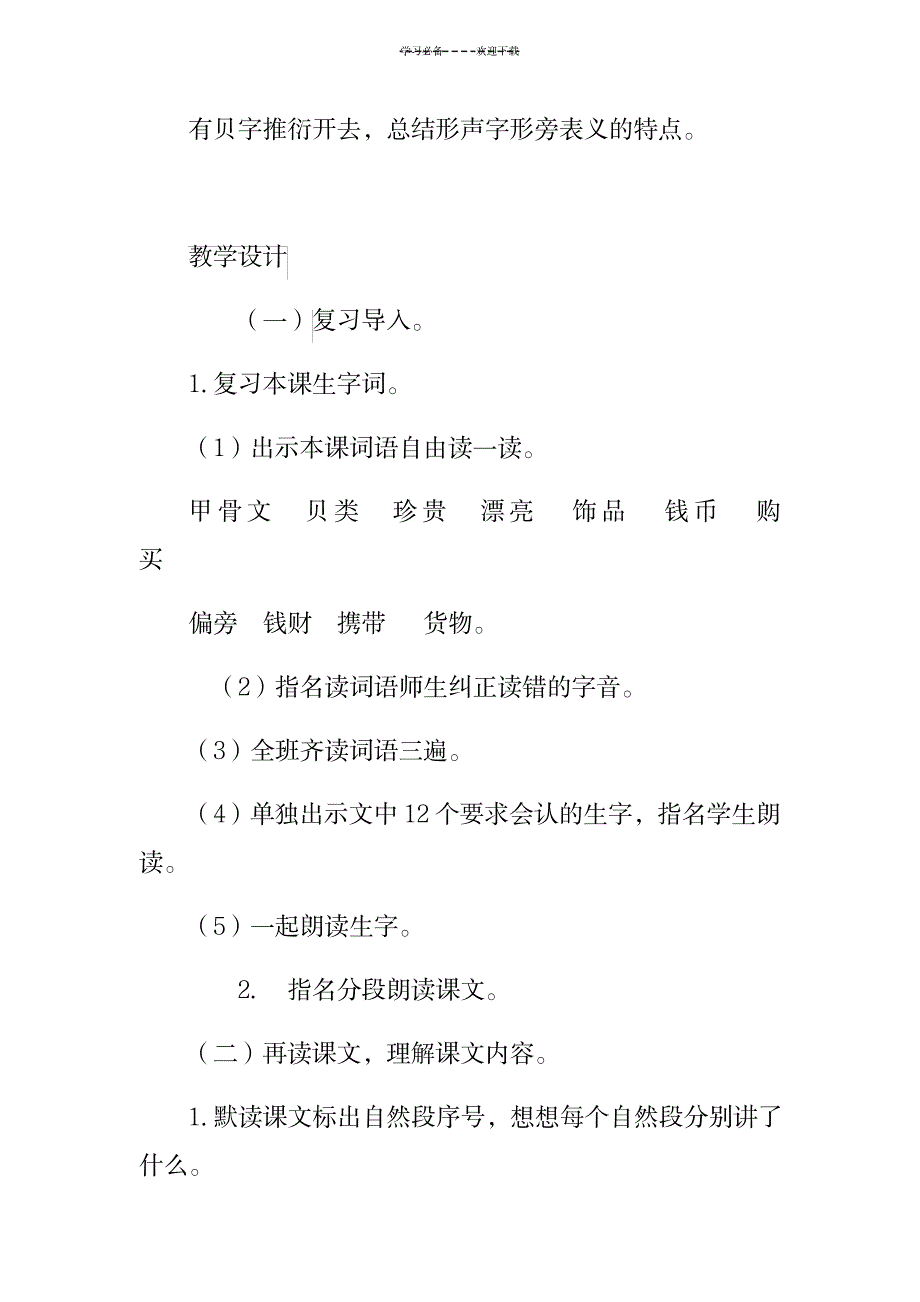 学习必备----欢迎下载
有贝字推衍开去，总结形声字形旁表义的特点。
教学设计
（一）复习导入。
1.复习本课生字词。
（1）出示本课词语自由读一读。
甲骨文 贝类 珍贵 漂亮 饰品 钱币 购
买
偏旁 钱财 携带 货物。
（2）指名读词语师生纠正读错的字音。
（3）全班齐读词语三遍。
（4）单独出示文中 12 个要求会认的生字，指名学生朗
读。
（5）一起朗读生字。
2. 指名分段朗读课文。
（二）再读课文，理解课文内容。
1.默读课文标出自然段序号，想想每个自然段分别讲了
什么。